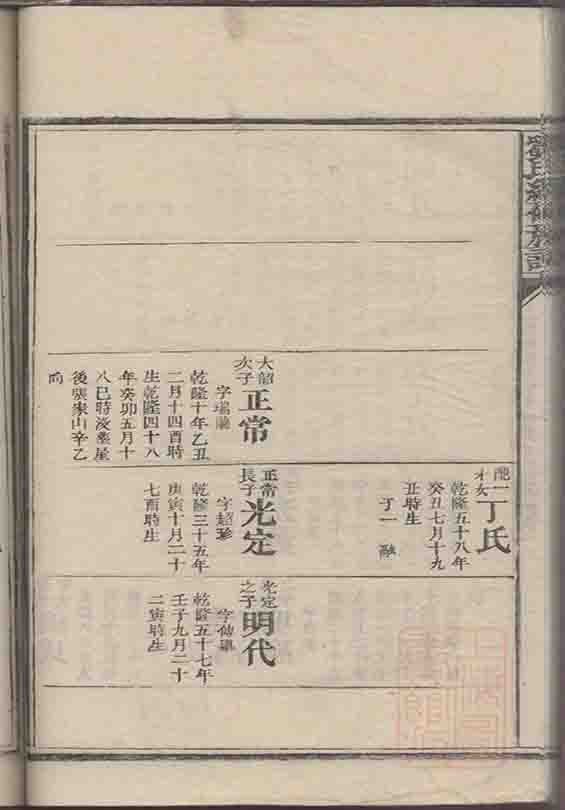 劉氏續修族譜
配一
才女
丁氏
乾隆五十八年
癸丑七月十九
丑時生
子一 融
大韶
次子
正常
字瑞
乾隆十年乙丑
二月十四酉時
生乾隆四十八
年癸卯五月十
八巳時沒葬星
後張家山辛乙
向
正常
長子
光定
字超珍
乾隆三十五年
庚寅十月二十
七酉時生
光定
之子
明代
字傳
乾隆五十七年
壬子九月二十
二寅時生